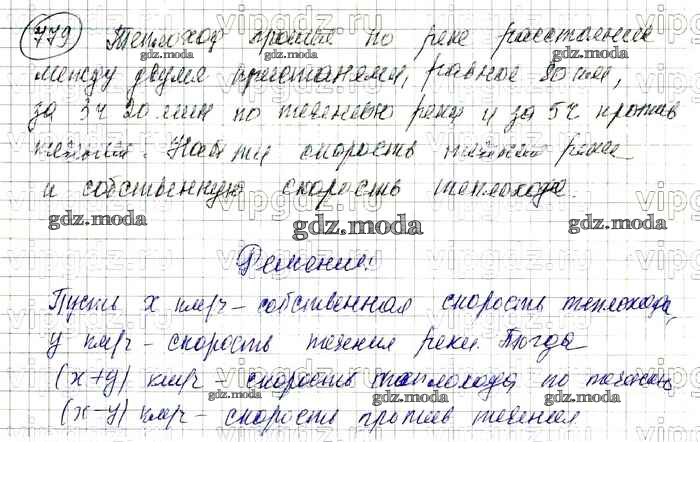 779 Теплоход прошёл по реке расстояние
между двумя пристанями, равное 80 км,
за 3ч 20 мин по течению реки и за 5ч против
течения. Найти скорость течения реки
и собственную скорость теплохода.
Решение:
Пусть x км/ч - собственная скорость теплохода,
y км/ч - скорость течения реки. Тогда
(x+y) км/ч - скорость теплохода по течению
(x-y) км/ч - скорость против течения